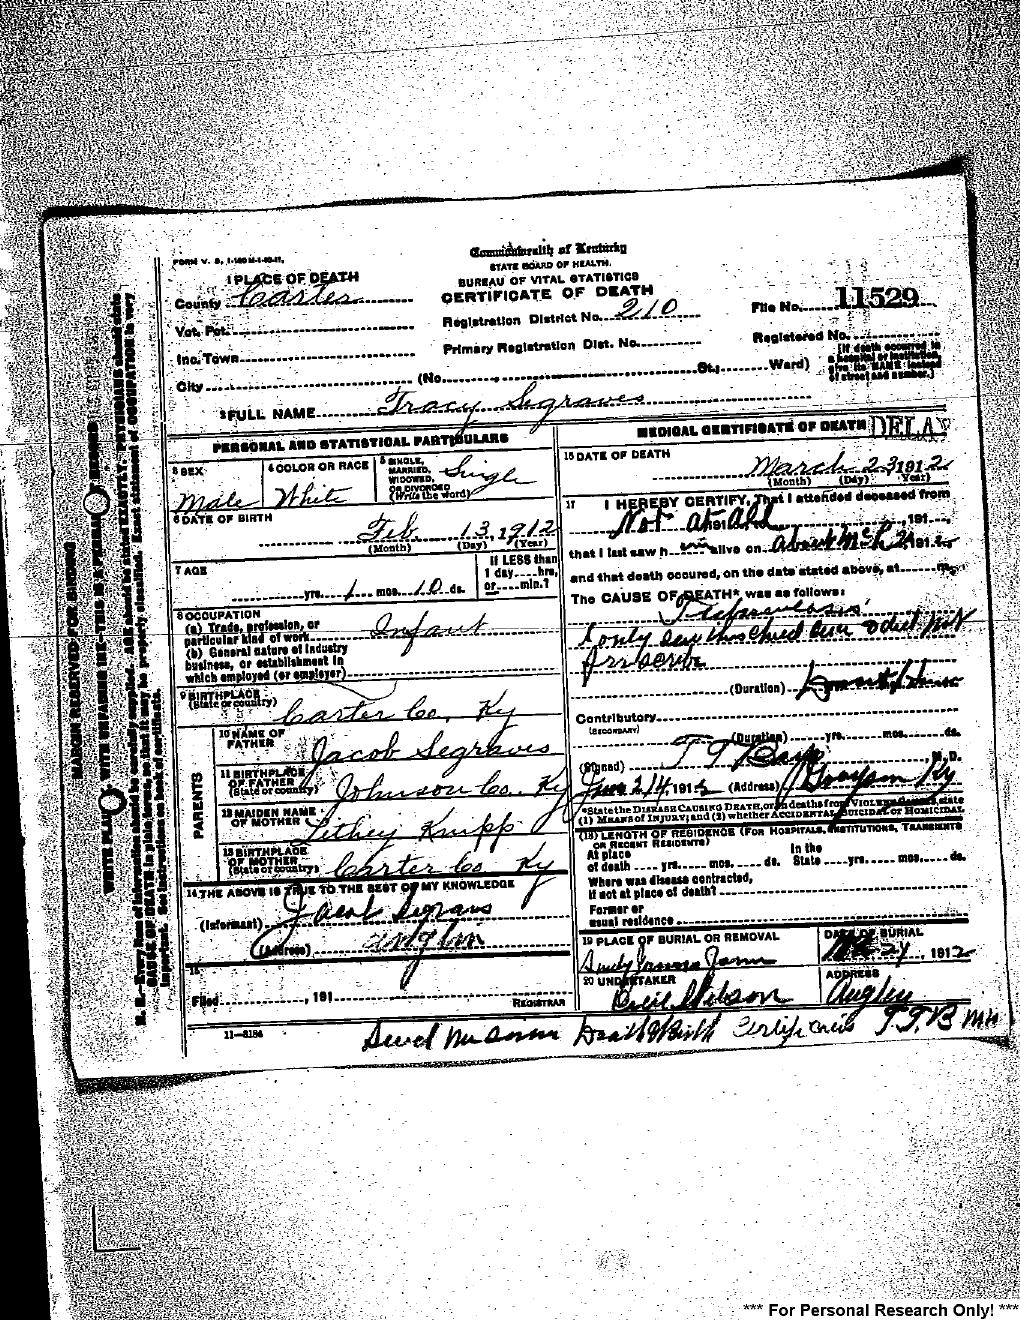 FORM V. S. 1-
Commonwealth of Kentucky
STATE BOARD OF HEALTH.
BUREAU OF VITAL STATISTICS
CERTIFICATE OF DEATH
1 PLACE OF DEATH
County Carter
Vot. Pct.
Inc. Town
City (No. St.; Ward)
Registration District No. 210
Primary Registration Dist. No.
File No. 11529
Registered No.
[If death occurred in
a hospital or institution,
give its NAME instead
of street and number.]
2 FULL NAME Tracy Segraves
PERSONAL AND STATISTICAL PARTICULARS
3 SEX
Male
4 COLOR OR RACE
White
5 SINGLE,
MARRIED,
WIDOWED,
OR DIVORCED
(Write the word)
Single
6 DATE OF BIRTH
Feb. 13, 1912
(Month) (Day) (Year)
7 AGE
yrs. 1 mos. 10 ds.
If LESS than
1 day....hrs,
or....min.?
8 OCCUPATION
(a) Trade, profession, or
particular kind of work Infant
(b) General nature of industry
business, or establishment in
which employed (or employer)
9 BIRTHPLACE
(State or country)
Carter Co, Ky
PARENTS
10 NAME OF
FATHER
Jacob Segraves
11 BIRTHPLACE
OF FATHER
(State or country)
Johnson Co. Ky
12 MAIDEN NAME
OF MOTHER
Knipp
13 BIRTHPLACE
OF MOTHER
(State or country)
Carter Co Ky
14 THE ABOVE IS TRUE TO THE BEST OF MY KNOWLEDGE
(Informant) Jacob Segraves
(Address)
15
Filed , 191 REGISTRAR
11—5184
MEDICAL CERTIFICATE OF DEATH DELAY
16 DATE OF DEATH
March 23 1912
(Month) (Day) (Year)
17 I HEREBY CERTIFY, That I attended deceased from
Not at all 191 , 191 ,
that I last saw h alive on about Mch 191
and that death occured, on the date stated above, at m.
The CAUSE OF DEATH* was as follows:
I only saw this child did not
(Duration)
Contributory
(SECONDARY)
(Duration) yrs. mos. ds.
(Signed) T T M. D.
191 (Address) Grayson Ky
*State the DISEASE CAUSING DEATH, or, in deaths from VIOLENT CAUSES, state
(1) MEANS of INJURY; and (2) whether ACCIDENTAL, SUICIDAL or HOMICIDAL
(18) LENGTH OF RESIDENCE (FOR HOSPITALS, INSTITUTIONS, TRANSIENTS
OR RECENT RESIDENTS)
At place
of death .... yrs. mos. ds.
In the
State yrs. mos. ds.
Where was disease contracted,
If not at place of death?
Former or
usual residence
19 PLACE OF BURIAL OR REMOVAL
DATE OF BURIAL
24, 1912
20 UNDERTAKER
ADDRESS
Send me some Death & Birth Certificates T.T.B
MARGIN RESERVED FOR BINDING
WRITE PLAINLY, WITH UNFADING INK—THIS IS A PERMANENT RECORD
N. B.—Every item of information should be carefully supplied. AGE should be stated EXACTLY. PHYSICIANS should state
CAUSE OF DEATH in plain terms, so that it may be properly classified. Exact statement of OCCUPATION is very
important. See instructions on back of certificate.
*** For Personal Research Only! ***